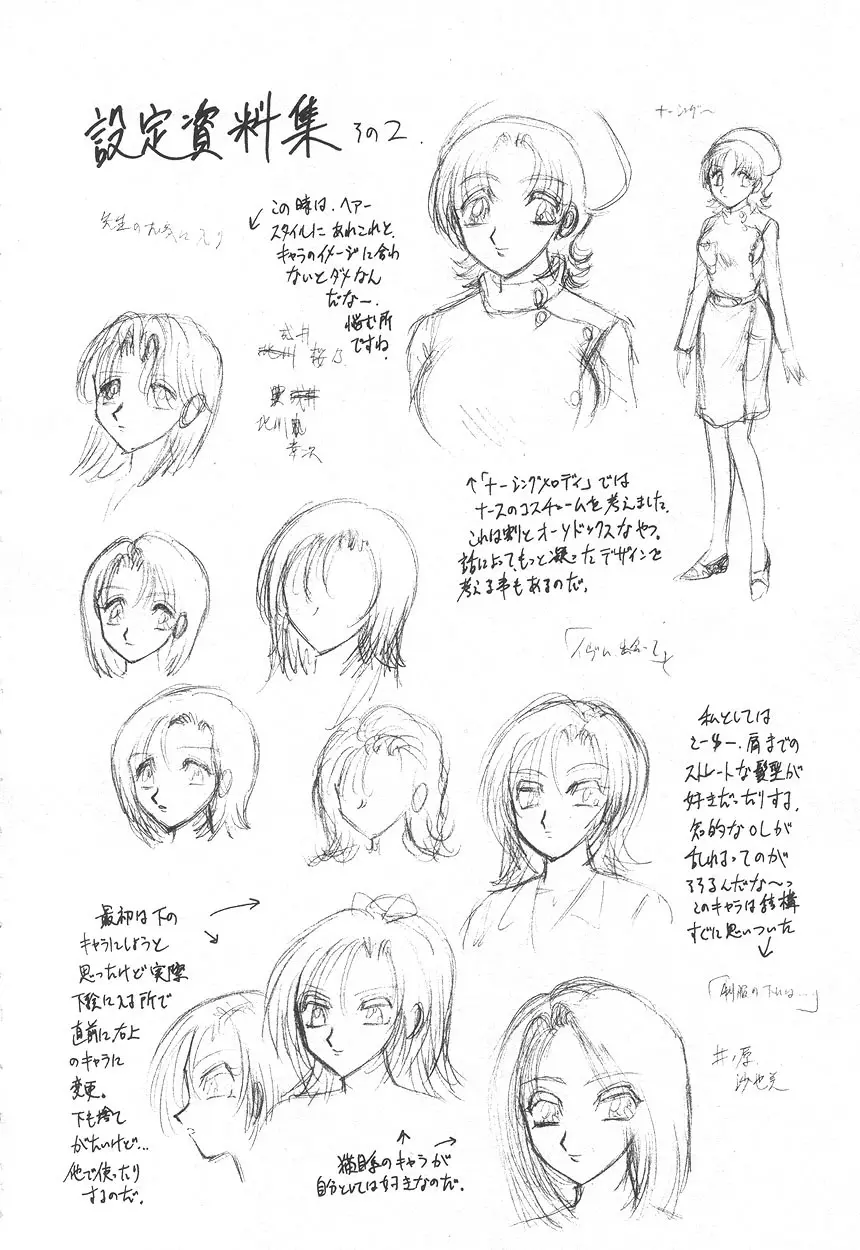 設定資料集 その2.
ナーシング〜
先生のお気に入り
この時は、ヘアー
スタイルにあれこれと、
キャラのイメージに合わ
ないとダメなん
だなー。
悩む所
ですね。
桜乃
北川
幸次
↑「ナーシングメロディ」では
ナースのコスチュームを考えました。
これは割とオーソドックスなやつ。
話によってもっと凝ったデザインで
考える事もあるのだ。
私としては
肩までの
ストレートな髪型が
好きだったりする。
知的なOLが
乱れるってのが
そそるんだな〜っ
このキャラは結構
すぐに思いついた
「制服の下には…」
井ノ原
沙也
最初は下の
キャラにしようと
思ったけど実際
下絵に入る所で
直前に右上
のキャラに
変更。
下も捨て
がたいけど…
他で使ったり
するのだ。
猫目系のキャラが
自分としては好きなのだ。